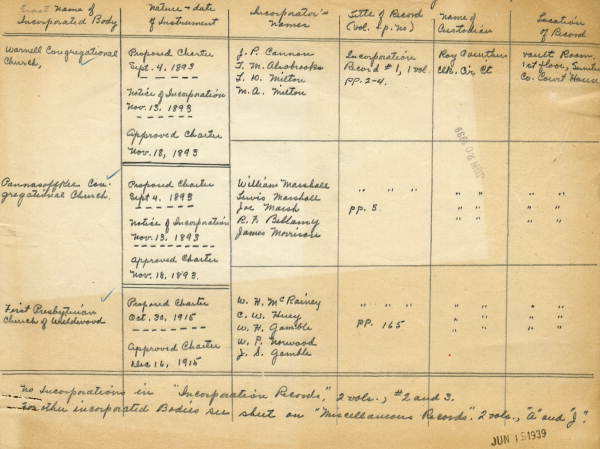 Exact Name of Incorporated Body
Nature & date of Instrument
Incorporator's Names
Title of Record (Vol. & p. no)
Name of Custodian
Location of Record
Warnell Congregational Church,
Proposed Charter
Sept. 4, 1893
Notice of Incorporation
Nov. 13. 1893
Approved Charter
Nov. 18, 1893
J. P. Cannon
T. M. Alsobrooks
L. D. Milton
M. A. Milton
Incorporation
Record #1, 1 vol.
pp. 2-4.
Roy Caruthers
Clk. Cir Ct
Vault Room,
1st floor, Sumter
Co. Court House
JUN 20 1939
Pannasoffkee Con-
gregational Church.
Proposed Charter
Sept 4. 1893
Notice of Incorporation
Nov. 13. 1893
Approved Charter
Nov. 18, 1893.
William Marshall
Lewis Marshall
Joe Marsh
R. F. Bellamy
James Morrison
" " "
pp. 5.
" "
" "
" "
" "
" "
" "
First Presbyterian
Church of Wildwood
Proposed Charter
Oct. 30, 1915
Approved Charter
Dec 16, 1915
W. H. McRainey
C. W. Huey
W. H. Gamble
W. P. Norwood
J. S. Gamble
" " "
pp. 165
" "
" "
" "
" "
" "
" "
No Incorporations in "Incorporation Records," 2 vols., #2 and 3.
For other incorporated Bodies see sheet on "Miscellaneous Records". 2 vols., "A" and "J".
JUN 15 1939